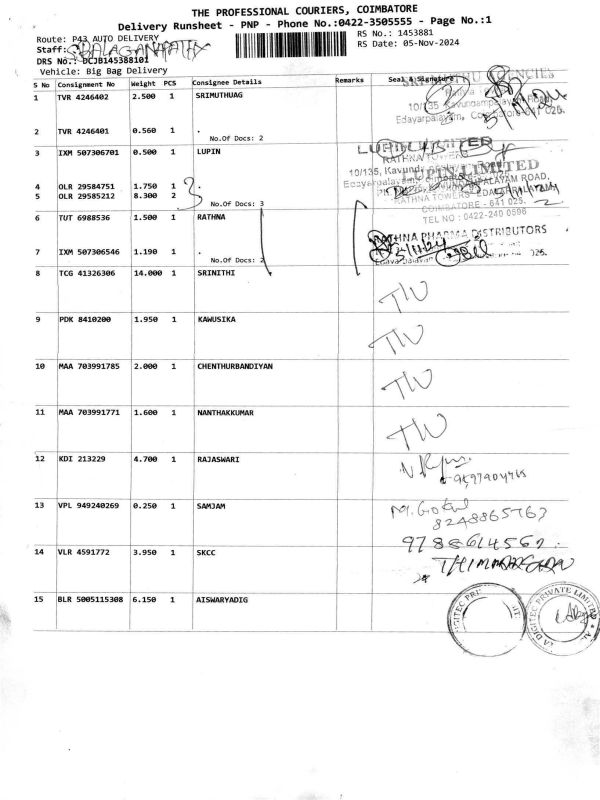 THE PROFESSIONAL COURIERS, COIMBATORE
Delivery Runsheet - PNP - Phone No.:0422-3505555 - Page No.:1
Route: P43 AUTO DELIVERY
RS No.: 1453881
Staff: BALAGANAPATHY
RS Date: 05-Nov-2024
DRS No.: DCJB145388101
Vehicle: Big Bag Delivery
S No Consignment No Weight PCS Consignee Details Remarks Seal & Signature
1 TVR 4246402 2.500 1 SRIMUTHUAG
10/135 Kavundampalayam Road,
Edayarpalayam, Coimbatore-641 025.
2 TVR 4246401 0.560 1 .
No.Of Docs: 2
3 IXM 507306701 0.500 1 LUPIN
LUPIN LIMITED
RATHNA TOWERS
10/135, Kavundampalayam
LUPIN LIMITED
4 OLR 29584751 1.750 1
5 OLR 29585212 8.300 2
No.Of Docs: 3
RATHNA TOWERS
COIMBATORE - 641 025.
TEL NO : 0422-240 0596
6 TUT 6988536 1.500 1 RATHNA
RATHNA PHARMA DISTRIBUTORS
5/11/24
7 IXM 507306546 1.190 1 .
No.Of Docs: 2
8 TCG 41326306 14.000 1 SRINITHI
9 PDK 8410200 1.950 1 KAWUSIKA
10 MAA 703991785 2.000 1 CHENTHURBANDIYAN
11 MAA 703991771 1.600 1 NANTHAKKUMAR
12 KDI 213229 4.700 1 RAJASWARI
13 VPL 949240269 0.250 1 SAMJAM M. Gokul
8248865763
9788614562
14 VLR 4591772 3.950 1 SKCC
15 BLR 5005115308 6.150 1 AISWARYADIG